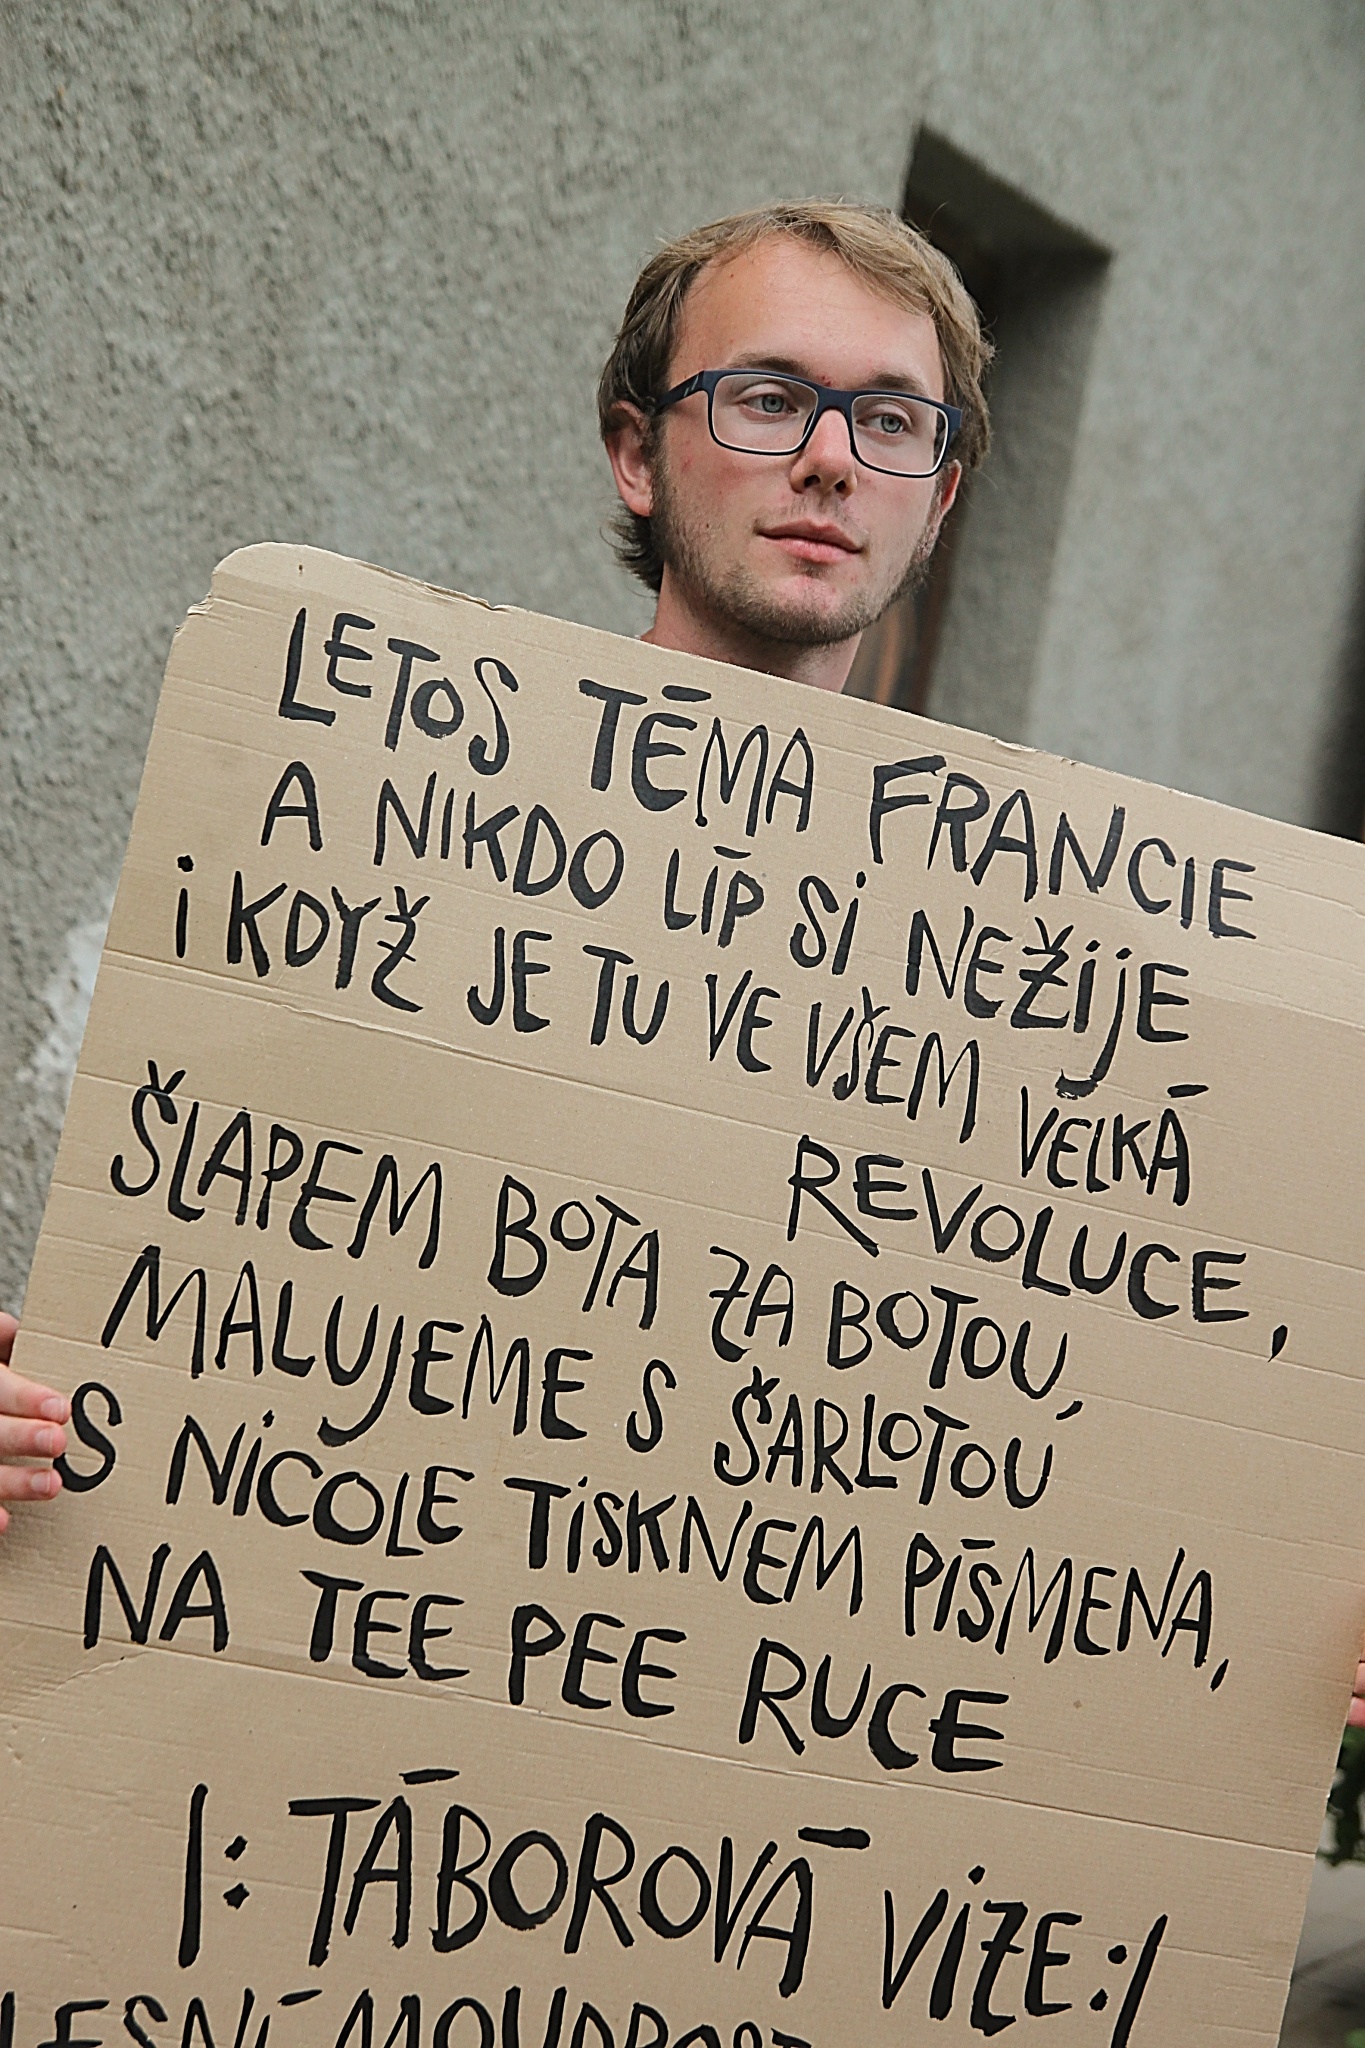 LETOS TÉMA FRANCIE
A NIKDO LÍP SI NEŽIJE
I KDYŽ JE TU VE VŠEM VELKÁ
REVOLUCE,
ŠLAPEM BOTA ZA BOTOU,
MALUJEME S ŠARLOTOU
S NICOLE TISKNEM PÍSMENA,
NA TEE PEE RUCE
|: TÁBOROVÁ VIZE :|
LESNÍ